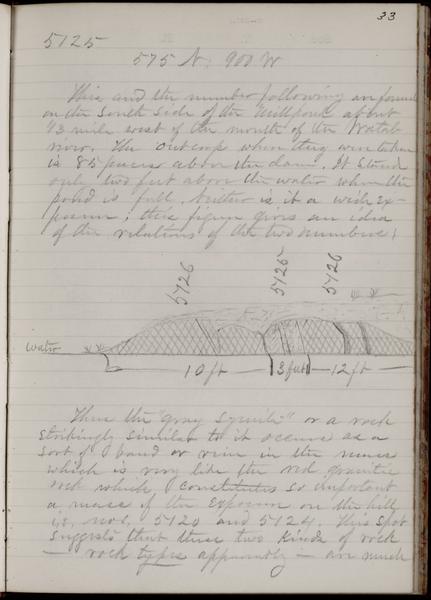 33
5125
575 N. 900 W
This and the number following are found
on the South Side of the Millpond about
1/3 mile west of the mouth of the Watab
river. The outcrop where they were taken
is 85 paces above the dam. It stands
only two feet above the water when the
pond is full, neither is it a wide ex-
posure; this figure gives an idea
of the relations of the two numbers:
5126 5125 5126
water
10 ft 3 feet 12 ft
Thus the "gray syenite" or a rock
strikingly similar to it occurs as a
sort of band or vein in the mass
which is very like the red granitic
rock which constitutes so important
a mass of the exposure on the hill
i.e. nos. 5120 and 5124. This spot
suggests that these two kinds of rock
— rock types apparently — are much